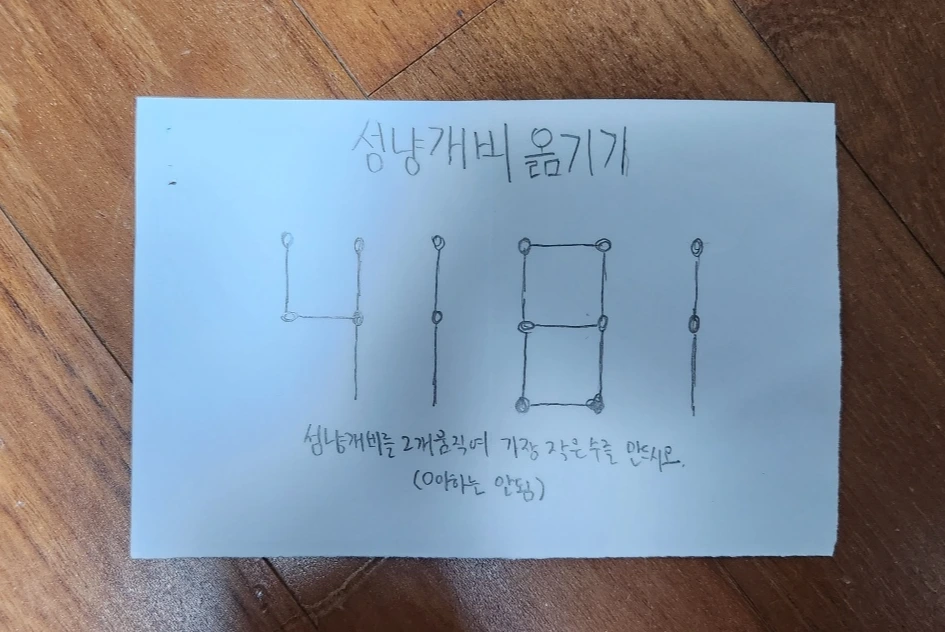 성냥개비 옮기기
4181
성냥개비를 2개 움직여 가장 작은수를 만드시오.
(0이하는 안됨)